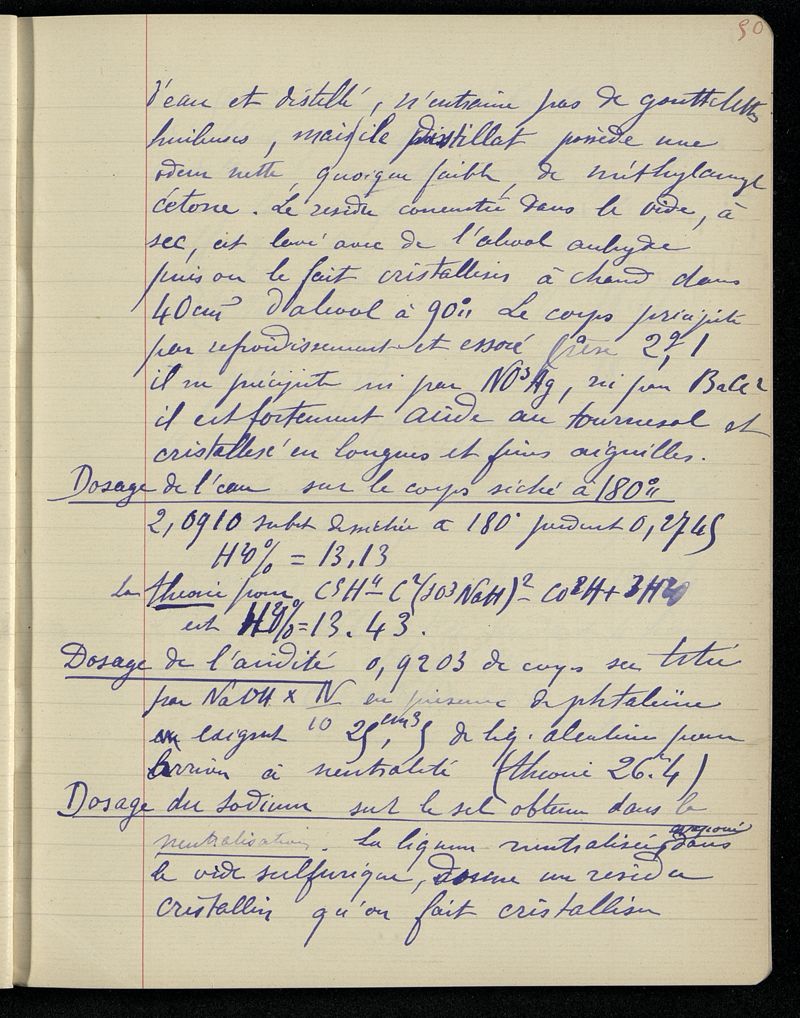 50
d'eau et distillé, n'entraine pas de gouttelettes
huileuses, mais le distillat possède une
odeur nette, quoique faible, de méthylamyl
cétone. Le residu concentré dans le vide, à
sec, est lavé avec de l'alcool anhydre
puis on le fait cristalliser à chaud dans
40cm³ d'alcool à 90° Le corps précipité
par refroidissement et essoré pèse 2g,1
il ne précipite ni par NO³Ag, ni par BaCl²
il est fortement acide au tournesol et
cristallisé en longues et fines aiguilles.
Dosage de l'eau sur le corps séché à 180°
2,0910 subst desséchée a 180° perdent 0,2745
H²O% = 13,13
La theorie pour C⁵H¹¹-C²(SO³NaH)²-CO²H+3H²O
est H²O%=13.43.
Dosage de l'acidité 0,9203 de corps sec titré
par NaOH × N/10 en présence de phtaleïne
exigent 25,cm³5 de liq. alcaline pour
arriver à neutralité (theorie 26.4)
Dosage du Sodium sur le sel obtenu dans la
neutralisation. La liqueur neutralisée, evaporée dans
le vide sulfurique, donne un residu
cristallin qu'on fait cristalliser